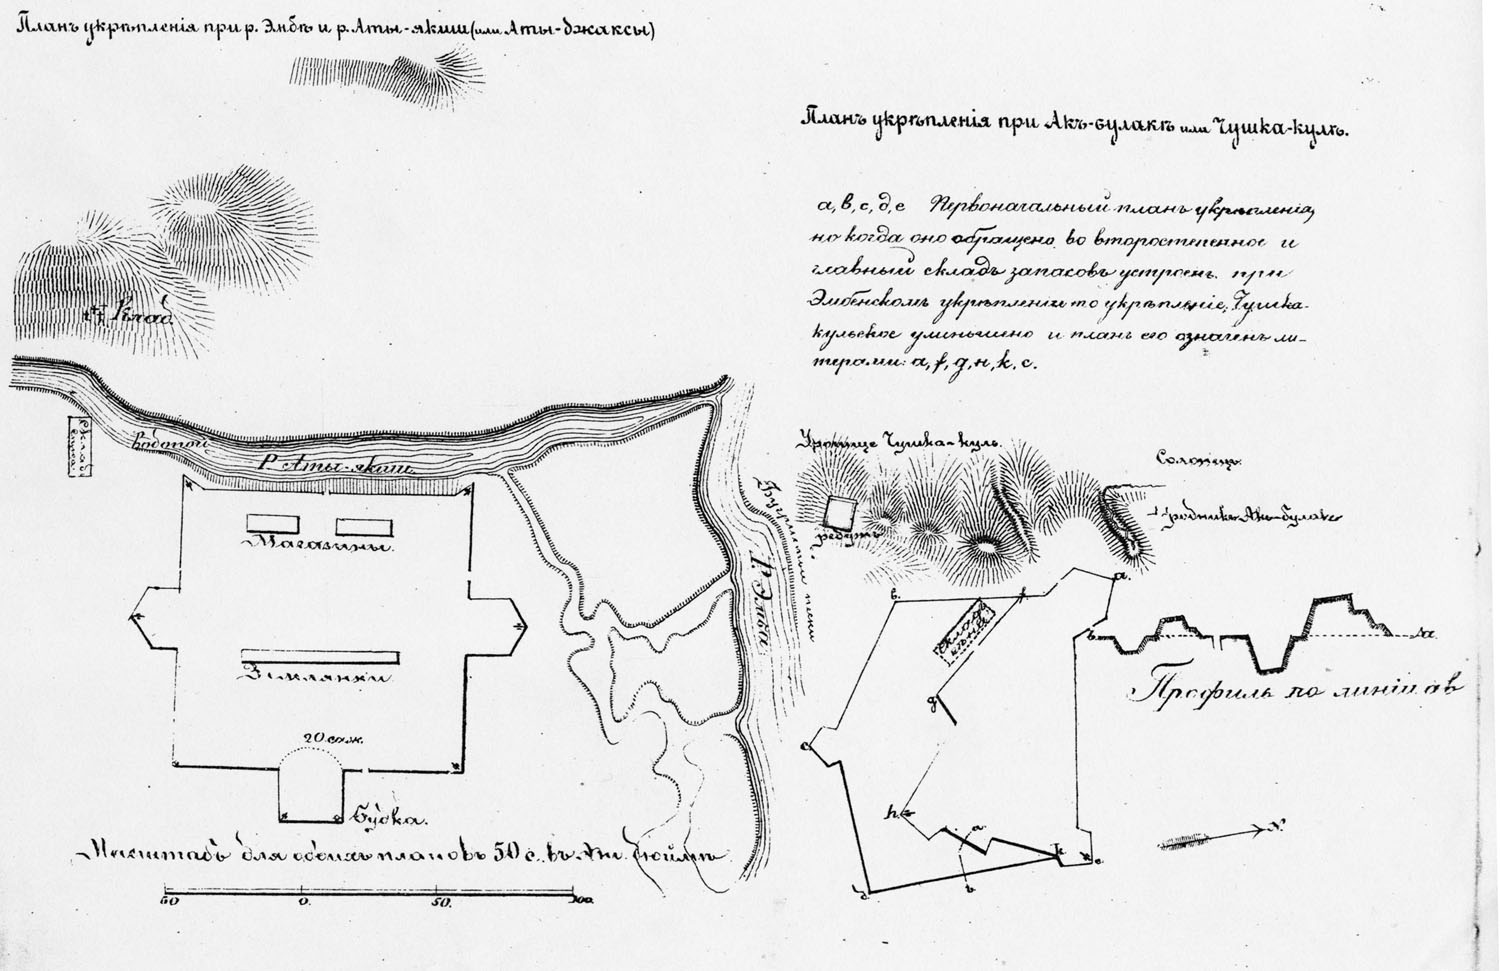 Планъ укрѣпленія при р. Эмбѣ и р. Аты-якши (или Аты-джаксы)
Клад.
водопой
Р. Аты-якши
Магазины.
Землянки.
20 саж.
Будка.
Масштабъ для обоихъ плановъ 50 с. въ дюймѣ
50 0. 50. 100.
Р. Эмба
Бугристые пески
Планъ укрѣпленія при Акъ-булакѣ или Чушка-кулѣ.
a, b, c, d, e Первоначальный планъ укрѣпленія,
но когда оно обращено во второстепенное и
главный складъ запасовъ устроенъ при
Эмбенскомъ укрѣпленіи то укрѣпленіе, Чушка-
кульское уменьшено и планъ его означенъ ли-
терами: a, f, g, н, k, c.
Урочище Чушка-куль.
редутъ
Солонецъ.
родникъ Акъ-булакъ
a.
b.
f
складъ
сѣна
g
c
h.
a
b
k
e
d
b
a
Профиль по линіи ab
N